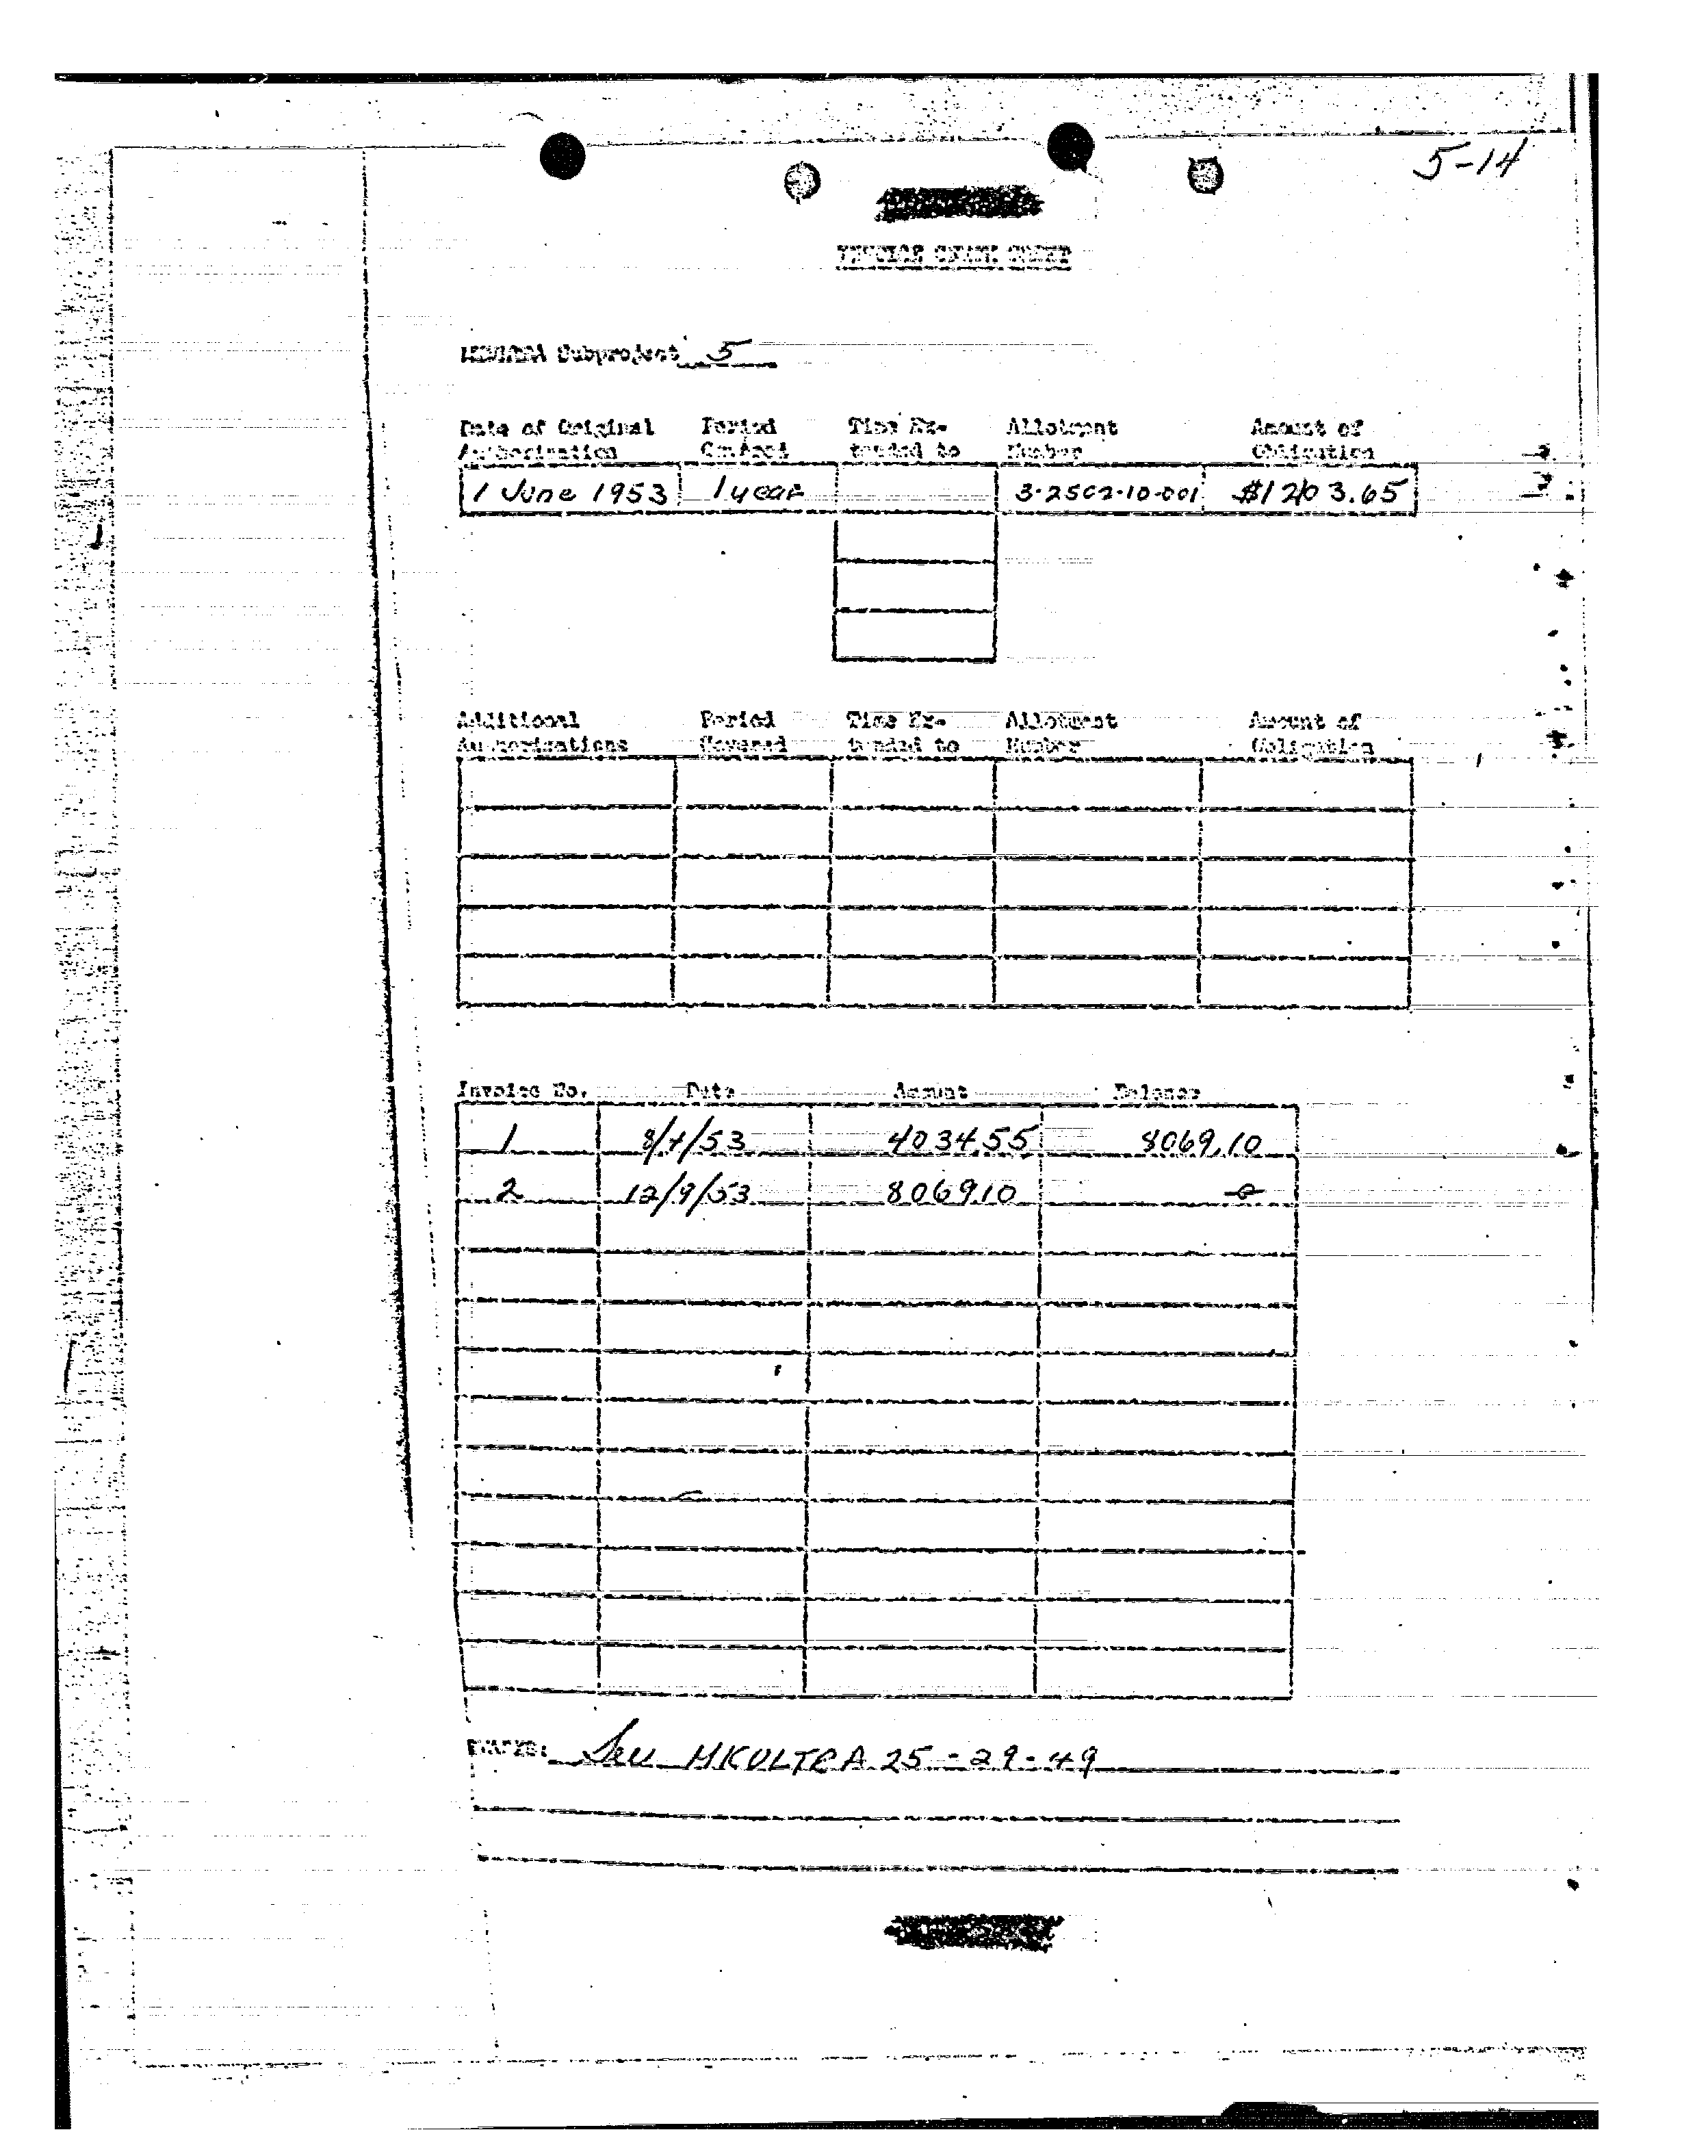 5-14
INVOICE CHECK SHEET
Subproject 5
Date of Original Period Time Ex- Allotment Amount of
Authorization Covered tended to Number Obligation
1 June 1953 1 year $12103.65
Additional Period Time Ex- Allotment Amount of
Authorizations Covered tended to Number Obligation
Invoice No. Date Amount Balance
1 8/4/53 4034.55 8069.10
2 12/9/53 8069.10 -0-
REMARKS: See MKULTRA 25-29-49